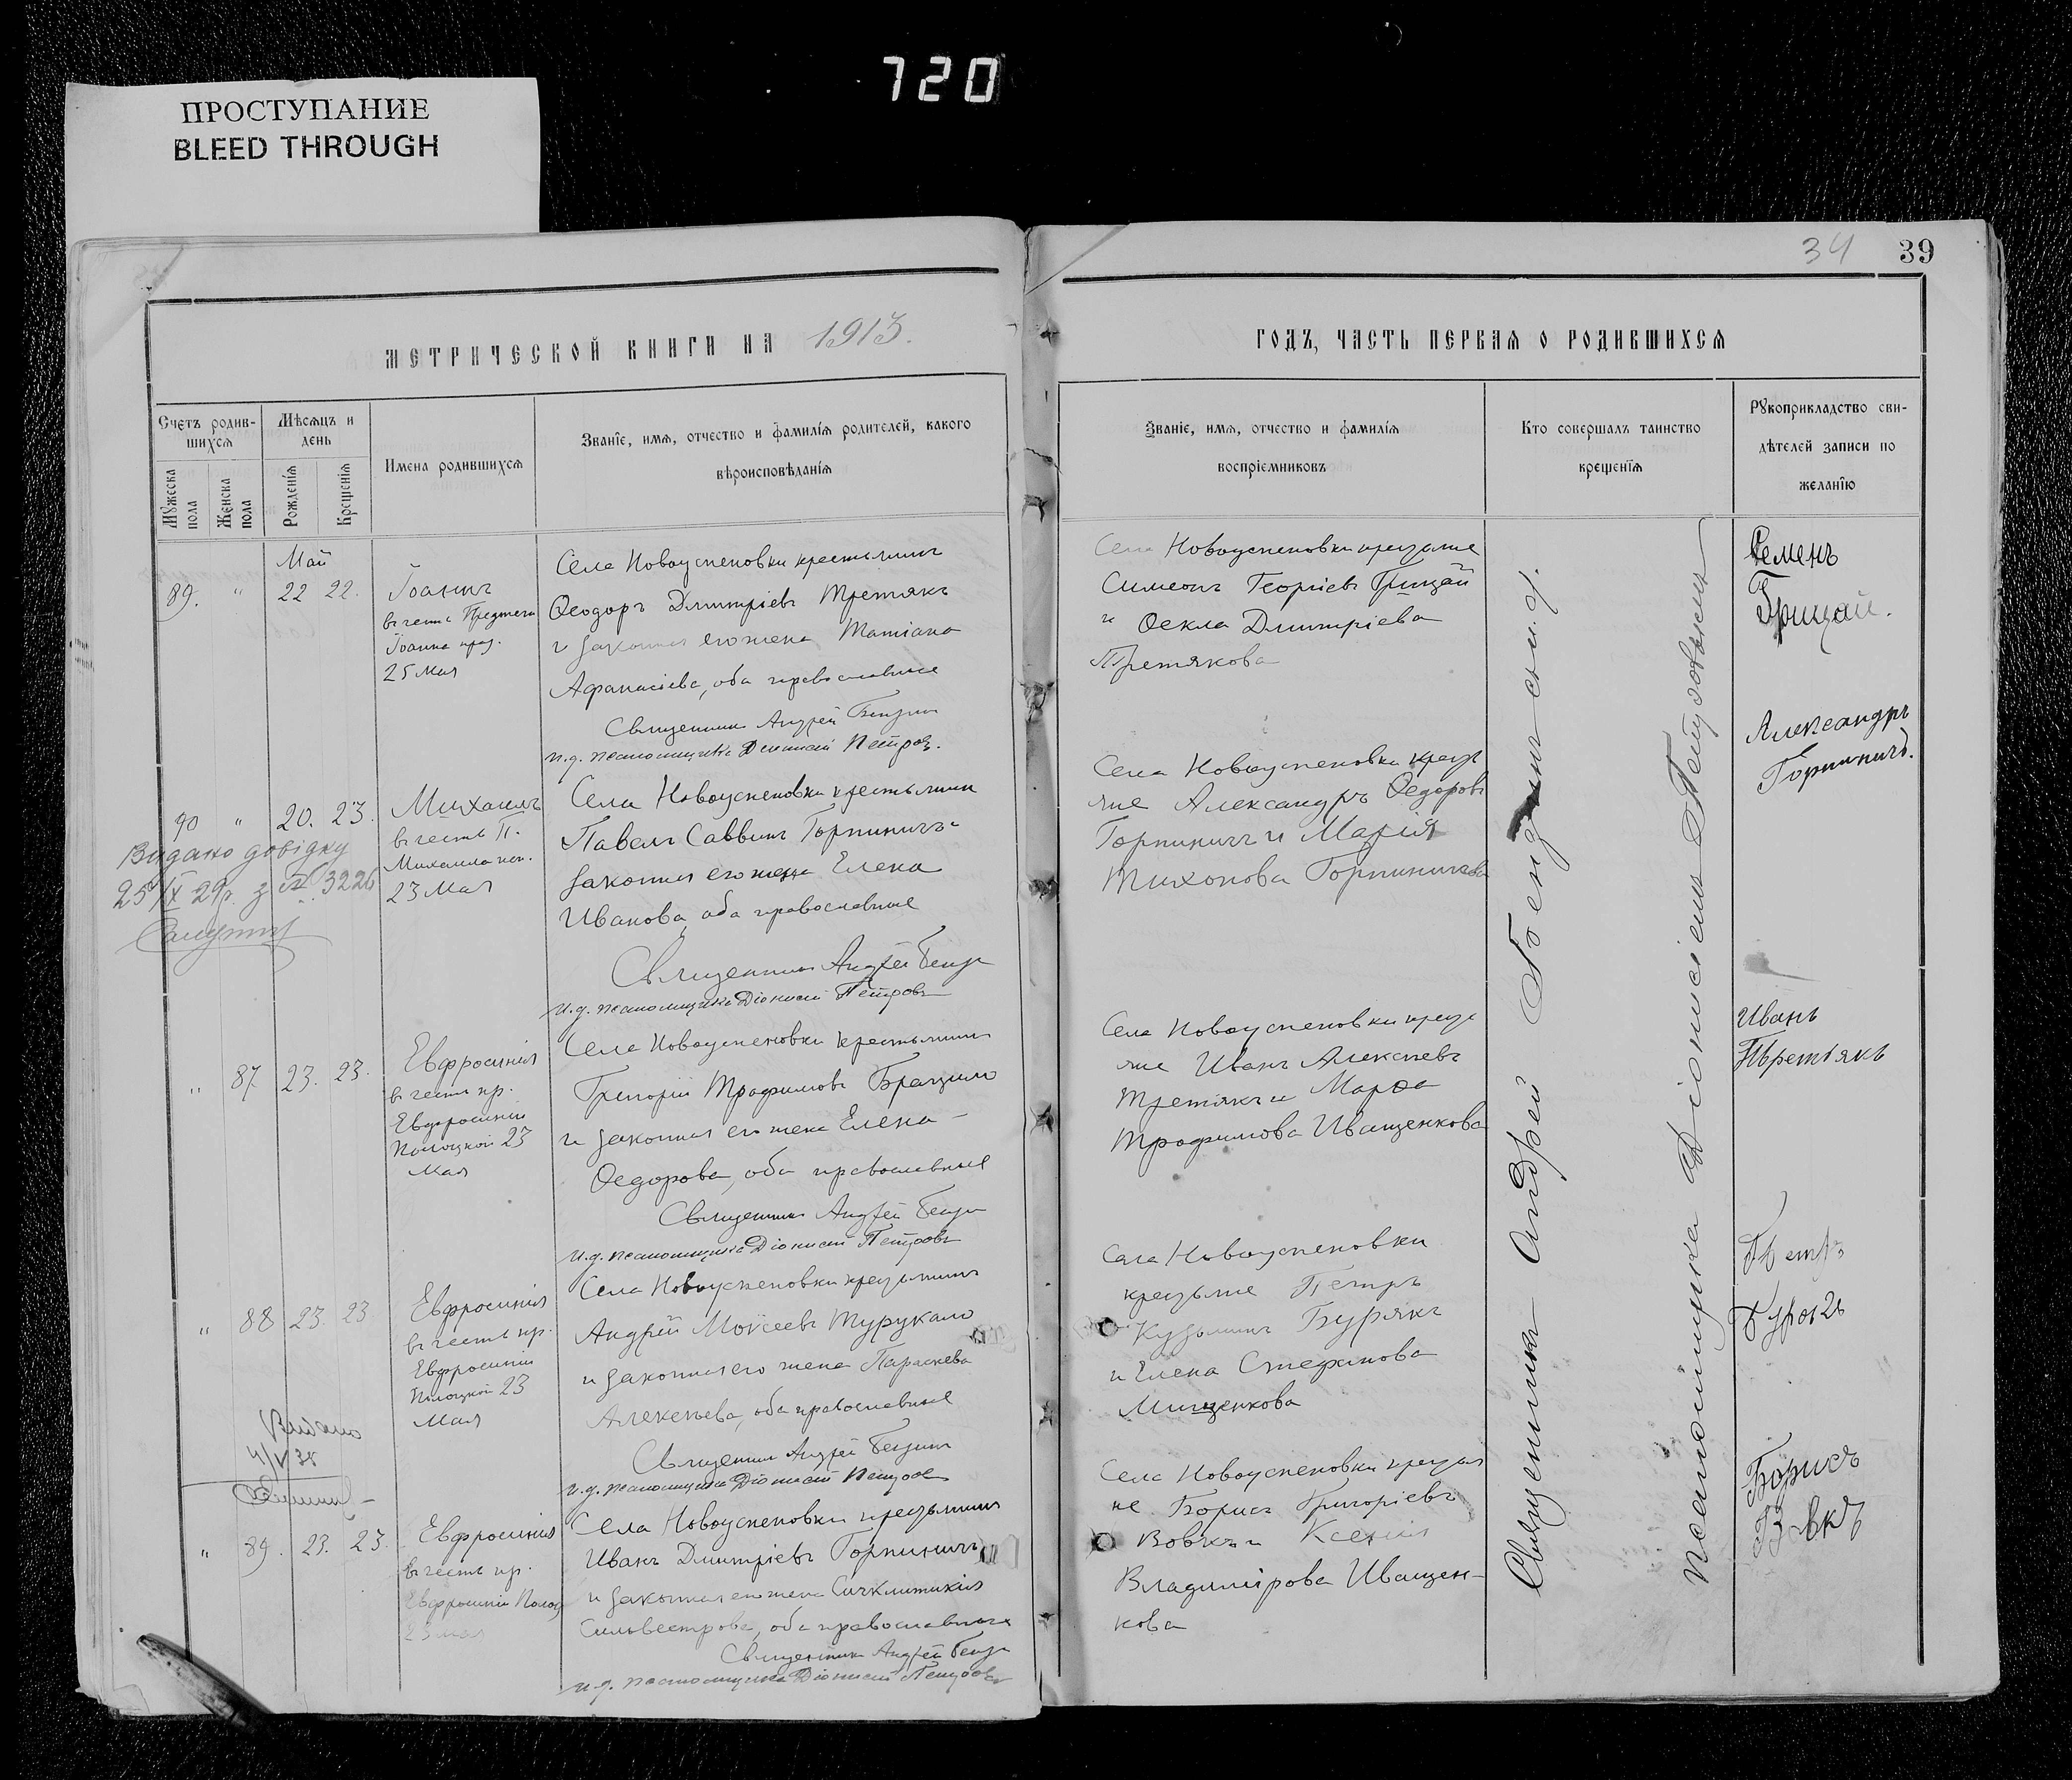 720
ПРОСТУПАНИЕ
BLEED THROUGH
34 39
МЕТРИЧЕСКОЙ КНИГИ НА 1913.
ГОДЪ, ЧАСТЬ ПЕРВАЯ О РОДИВШИХСЯ
Счетъ родив-
шихся
Мужеска
пола
Женска
пола
Мѣсяцъ и
день
Рожденія
Крещенія
Имена родившихся
Званїе, имя, отчество и фамилїя родителей, какого
вѣроисповѣданїя
Званїе, имя, отчество и фамилїя
воспрїемниковъ
Кто совершалъ таинство
крещенїя
Рукоприкладство сви-
дѣтелей записи по
желанїю
Май
89. " 22 22.
Іоаннъ
въ честь Предтечи
Іоанна праз.
25 мая
Села Новоуспеновки крестьянинъ
Ѳеодоръ Дмитріевъ Третякъ
и законная его жена Татіана
Афанасіева, оба православные
Священникъ Андрей
и.д. псаломщика Діонисій Петровъ.
Села Новоуспеновки крестьяне
Симеонъ Георгіевъ Грицай
и Ѳекла Димитріева
Третякова
Семенъ
Грицай.
90 " 20. 23.
Михаилъ
въ честь П.
Михаила исп.
23 Мая
Видано довідку
25/IX 29р. з № 3226
Села Новоуспеновки крестьянинъ
Павелъ Саввинъ Горпиничъ и
законная его жена Елена
Иванова, оба православные
Священникъ Андрей
и.д. псаломщика Діонисій Петровъ
Села Новоуспеновки кресть
яне Александръ Ѳедоровъ
Горпиничъ и Марія
Тихонова Горпиничева
Александръ
Горпиничъ.
" 87 23. 23.
Евфросинія
въ честь пр.
Евфросиніи
Полоцкой 23
Мая
Села Новоуспеновки крестьянинъ
Григорій Трофимовъ
и законная его жена Елена
Ѳедорова, оба православные
Священникъ Андрей
и.д. псаломщика Діонисій Петровъ
Села Новоуспеновки кресть
яне Иванъ Алексіевъ
Третякъ и Марѳа
Трофимова Иващенкова
Иванъ
Третьякъ
" 88 23. 23
Евфросинія
въ честь пр.
Евфросиніи
Полоцкой 23
Мая
Села Новоуспеновки крестьянинъ
Андрей Моисеевъ Турукало
и законная его жена Параскева
Алексѣева, оба православные
Священникъ Андрей
и.д. псаломщика Діонисій Петровъ
Села Новоуспеновки
крестьяне Петръ
Кузьминъ Бурякъ
и Елена Стефанова
Мищенкова
Петръ
Видано
4/V 38
" 89. 23. 23.
Евфросинія
въ честь пр.
Евфросиніи Полоц
23 мая
Села Новоуспеновки крестьянинъ
Иванъ Дмитріевъ Горпиничъ
и законная его жена Синклитикія
Сильвестрова, оба православные
Священникъ Андрей
и.д. псаломщика Діонисій Петровъ
Села Новоуспеновки крестья
не Борисъ Григоріевъ
Вовкъ и Ксенія
Владимірова Иващен-
кова
Борисъ
Вовкъ
Священникъ Андрей
псаломщика Діонисіемъ Петровымъ